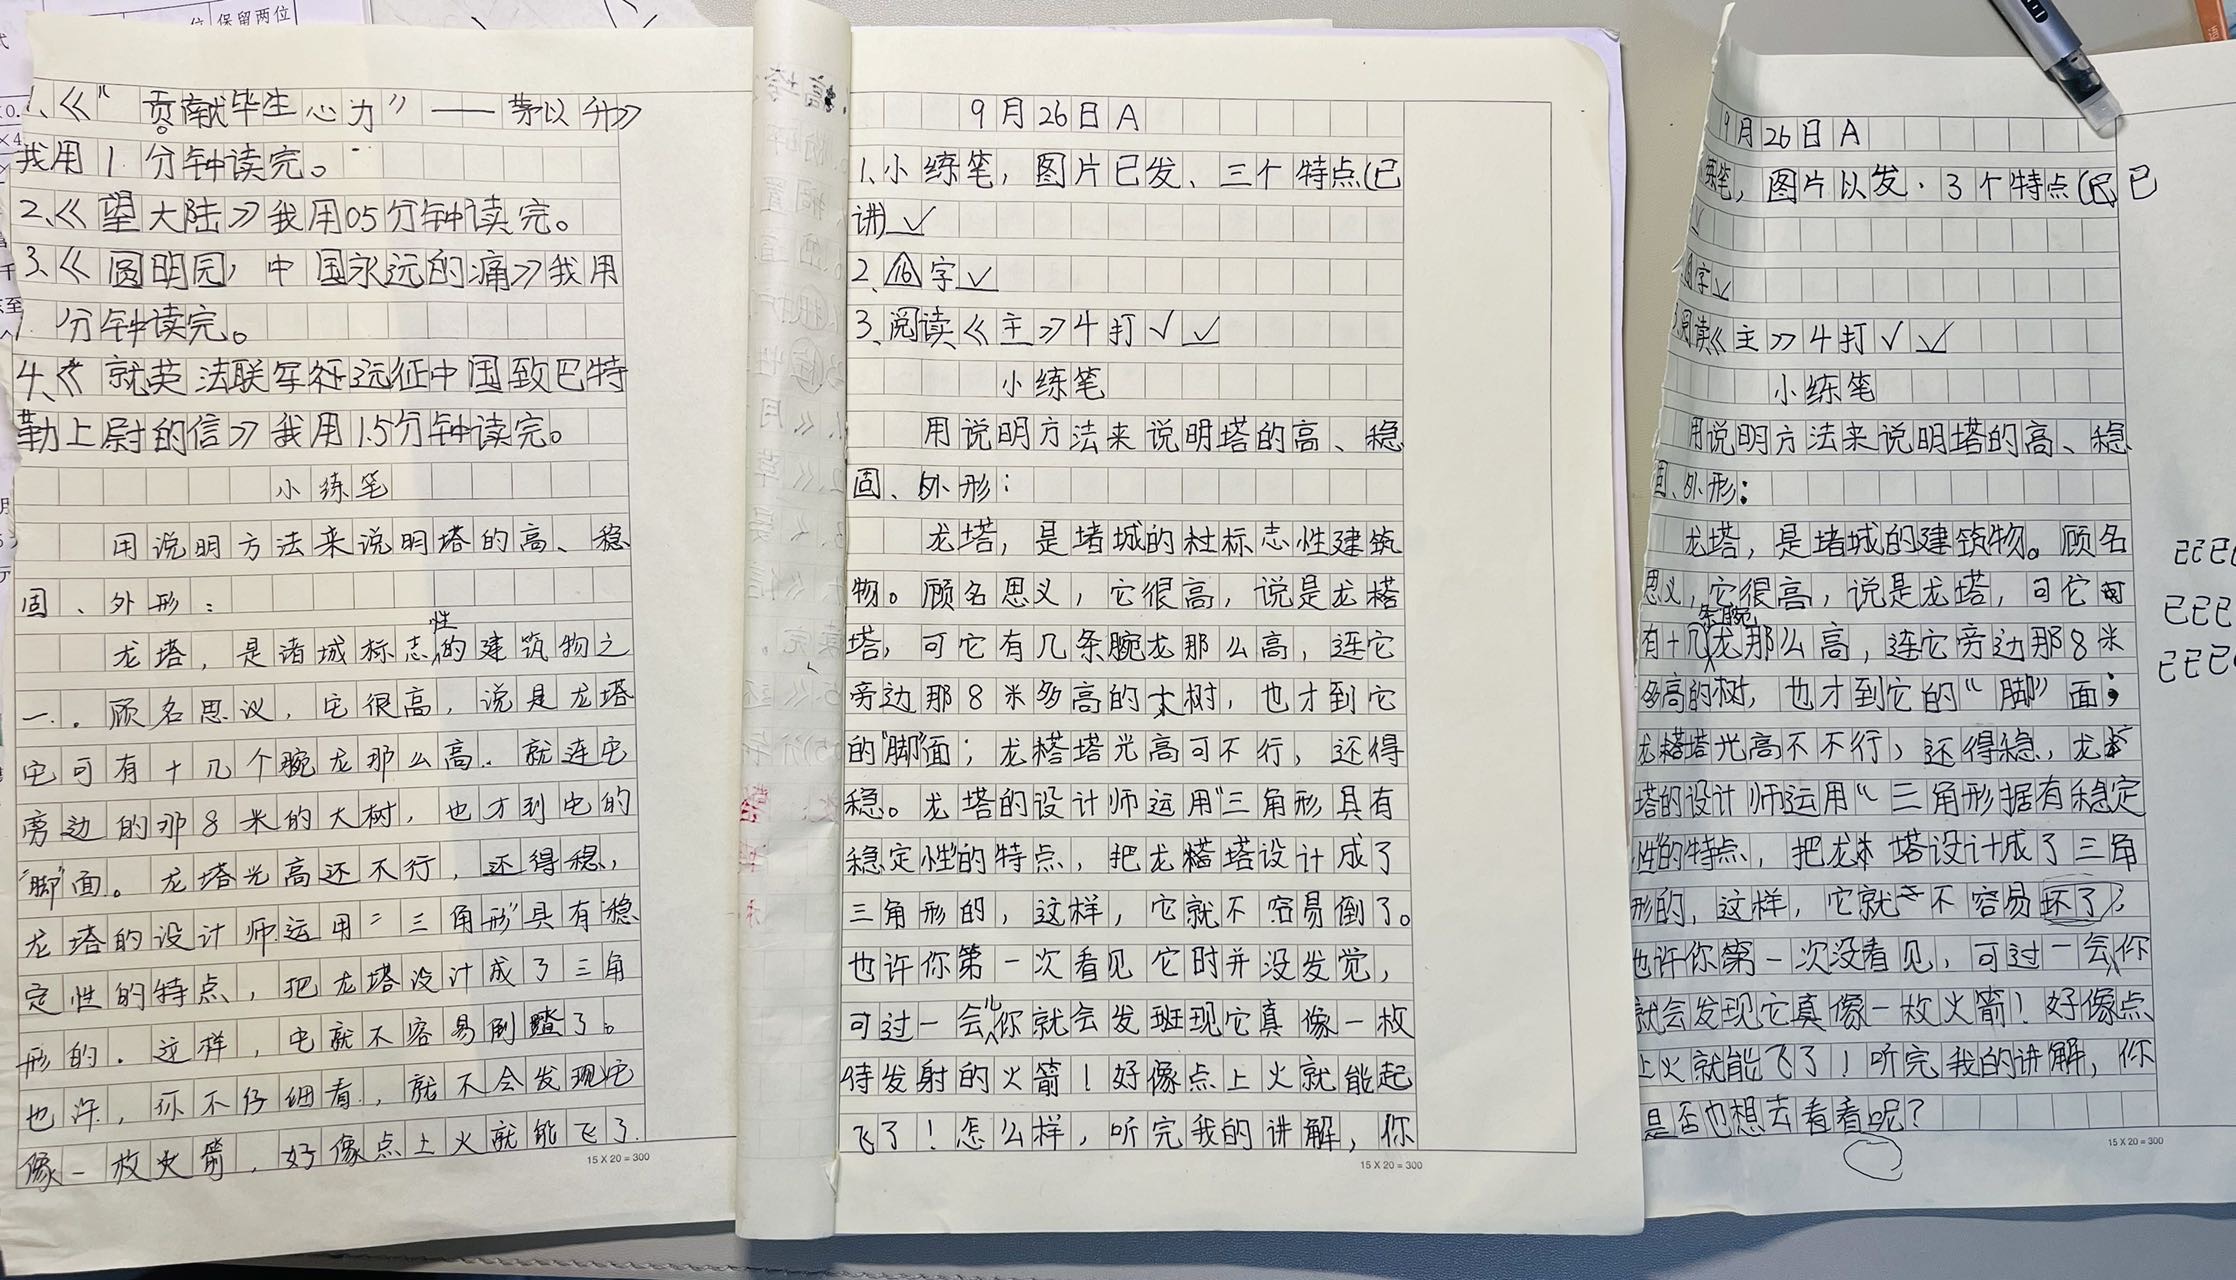 位 保留两位
1、《“贡献毕生心力”——茅以升》
我用1分钟读完。
2、《望大陆》我用05分钟读完。
3、《圆明园，中国永远的痛》我用
1分钟读完。
4、《就英法联军征远征中国致巴特
勒上尉的信》我用1.5分钟读完。
小练笔
用说明方法来说明塔的高、稳
固、外形：
龙塔，是诸城标志性的建筑物之
一。顾名思议，它很高，说是龙塔
它可有十几个腕龙那么高。就连它
旁边的那8米的大树，也才到它的
“脚”面。龙塔光高还不行，还得稳，
龙塔的设计师运用“三角形”具有稳
定性的特点，把龙塔设计成了三角
形的。这样，它就不容易倒蹋了。
也许，你不仔细看，就不会发现它
像一枚火箭，好像点上火就能飞了。
15 X 20 = 300
9月26日A
1、小练笔，图片已发、三个特点(已
讲)✓
2、⑯字✓
3、阅读《主》4打√✓
小练笔
用说明方法来说明塔的高、稳
固、外形：
龙塔，是堵城的标志性建筑
物。顾名思义，它很高，说是龙
塔，可它有几条腕龙那么高，连它
旁边那8米多高的大树，也才到它
的“脚”面；龙塔光高可不行，还得
稳。龙塔的设计师运用“三角形具有
稳定性”的特点，把龙塔设计成了
三角形的，这样，它就不容易倒了。
也许你第一次看见它时并没发觉，
可过一会儿你就会发现它真像一枚
待发射的火箭！好像点上火就能起
飞了！怎么样，听完我的讲解，你
15 X 20 = 300
9月26日A
练笔，图片以发．3个特点(已
✓
字✓
阅读《主》4打√✓
小练笔
用说明方法来说明塔的高、稳
固、外形：
龙塔，是堵城的建筑物。顾名
思义，它很高，说是龙塔，可它
有十几条腕龙那么高，连它旁边那8米
多高的树，也才到它的“脚”面；
龙塔光高不不行，还得稳，龙
塔的设计师运用“三角形据有稳定
性”的特点，把龙塔设计成了三角
形的，这样，它就不容易坏了，
也许你第一次没看见，可过一会你
就会发现它真像一枚火箭！好像点
上火就能飞了！听完我的讲解，你
是否也想去看看呢？
15 X 20 = 300
已已已
已已已
已已已